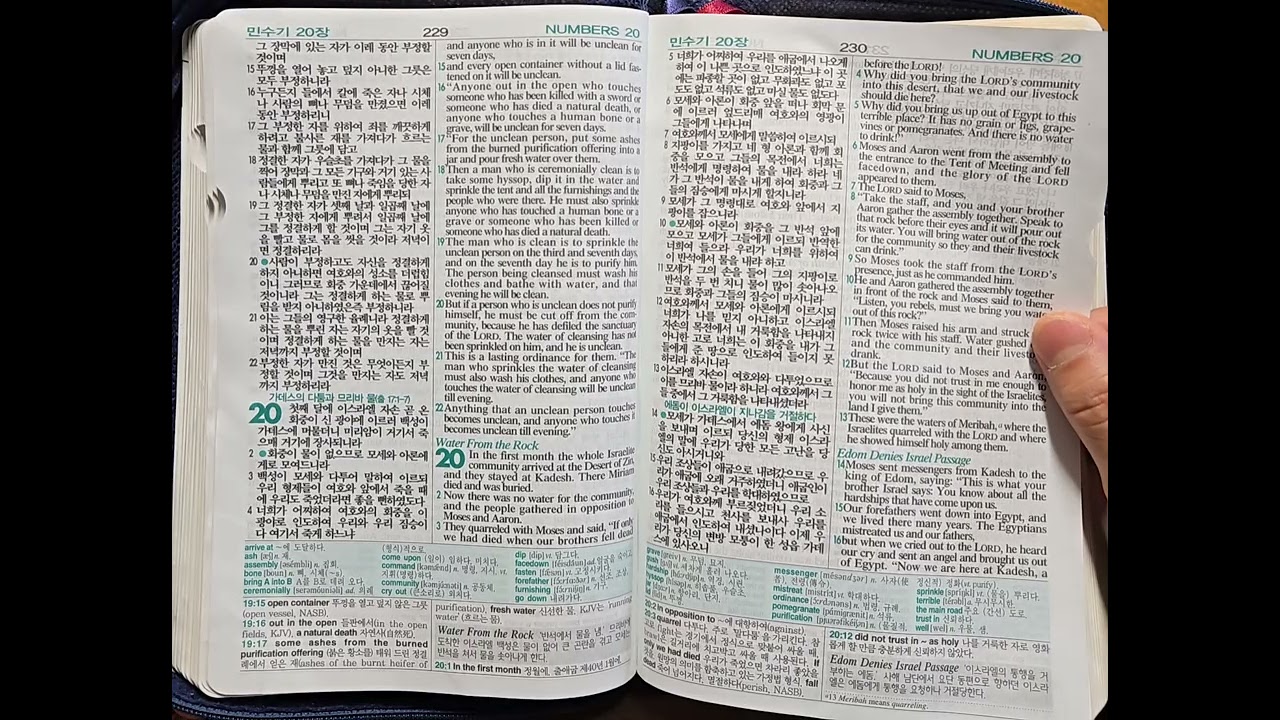 민수기 20장
229
NUMBERS 20
그 장막에 있는 자가 이레 동안 부정할
것이며
15 뚜껑을 열어 놓고 덮지 아니한 그릇은
모두 부정하니라
16 누구든지 들에서 칼에 죽은 자나 시체
나 사람의 뼈나 무덤을 만졌으면 이레
동안 부정하리니
17 그 부정한 자를 위하여 죄를 깨끗하게
하려고 불사른 재를 가져다가 흐르는
물과 함께 그릇에 담고
18 정결한 자가 우슬초를 가져다가 그 물을
찍어 장막과 그 모든 기구와 거기 있는 사
람들에게 뿌리고 또 뼈나 죽임을 당한 자
나 시체나 무덤을 만진 자에게 뿌리되
19 그 정결한 자가 셋째 날과 일곱째 날에
그 부정한 자에게 뿌려서 일곱째 날에
그를 정결하게 할 것이며 그는 자기 옷
을 빨고 물로 몸을 씻을 것이라 저녁이
면 정결하리라
20 ●사람이 부정하고도 자신을 정결하게
하지 아니하면 여호와의 성소를 더럽힘
이니 그러므로 회중 가운데에서 끊어질
것이니라 그는 정결하게 하는 물로 뿌
림을 받지 아니하였은즉 부정하니라
21 이는 그들의 영구한 율례니라 정결하게
하는 물을 뿌린 자는 자기의 옷을 빨 것
이며 정결하게 하는 물을 만지는 자는
저녁까지 부정할 것이며
22 부정한 자가 만진 것은 무엇이든지 부
정할 것이며 그것을 만지는 자도 저녁
까지 부정하리라
가데스의 다툼과 므리바 물(출 17:1-7)
20 첫째 달에 이스라엘 자손 곧 온
회중이 신 광야에 이르러 백성이
가데스에 머물더니 미리암이 거기서 죽
으매 거기에 장사되니라
2 ●회중이 물이 없으므로 모세와 아론에
게로 모여드니라
3 백성이 모세와 다투어 말하여 이르되
우리 형제들이 여호와 앞에서 죽을 때
에 우리도 죽었더라면 좋을 뻔하였도다
4 너희가 어찌하여 여호와의 회중을 이
광야로 인도하여 우리와 우리 짐승이
다 여기서 죽게 하느냐
and anyone who is in it will be unclean for
seven days,
15 and every open container without a lid fas-
tened on it will be unclean.
16 "Anyone out in the open who touches
someone who has been killed with a sword or
someone who has died a natural death, or
anyone who touches a human bone or a
grave, will be unclean for seven days.
17 "For the unclean person, put some ashes
from the burned purification offering into a
jar and pour fresh water over them.
18 Then a man who is ceremonially clean is to
take some hyssop, dip it in the water and
sprinkle the tent and all the furnishings and the
people who were there. He must also sprinkle
anyone who has touched a human bone or a
grave or someone who has been killed or
someone who has died a natural death.
19 The man who is clean is to sprinkle the
unclean person on the third and seventh days,
and on the seventh day he is to purify him.
The person being cleansed must wash his
clothes and bathe with water, and that
evening he will be clean.
20 But if a person who is unclean does not purify
himself, he must be cut off from the com-
munity, because he has defiled the sanctuary
of the LORD. The water of cleansing has not
been sprinkled on him, and he is unclean.
21 This is a lasting ordinance for them. "The
man who sprinkles the water of cleansing
must also wash his clothes, and anyone who
touches the water of cleansing will be unclean
till evening.
22 Anything that an unclean person touches
becomes unclean, and anyone who touches it
becomes unclean till evening."
Water From the Rock
20 In the first month the whole Israelite
community arrived at the Desert of Zin,
and they stayed at Kadesh. There Miriam
died and was buried.
2 Now there was no water for the community,
and the people gathered in opposition to
Moses and Aaron.
3 They quarreled with Moses and said, "If only
we had died when our brothers fell dead
arrive at ~에 도달하다.
ash [æʃ] n. 재.
assembly [əsémbli] n. 집회.
bone [boun] n. 뼈, 시체(~s)
bring A into B A를 B로 데려 오다.
ceremonially ad. 의례
(형식)적으로
come upon (일이) 임하다, 미치다.
command n. 명령, 지시, vt.
지휘(명령)하다.
community n. 공동체.
cry out (큰소리로) 외치다.
dip [dip] vt. 담그다.
facedown ad. 얼굴을 숙이고.
fasten vt. 고정시키다.
forefather n. 선조, 조상.
furnishing n. 가구.
go down 내려가다.
19:15 open container 뚜껑을 열고 덮지 않은 그릇
(open vessel, NASB).
19:16 out in the open 들판에서(in the open
fields, KJV), a natural death 자연사(自然死).
19:17 some ashes from the burned
purification offering (붉은 황소를) 태워 드린 정결
례에서 얻은 재(ashes of the burnt heifer of
purification), fresh water 신선한 물, KJV는 'running
water' (흐르는 물).
Water From the Rock '반석에서 물을 냄'. 므리바에
도착한 이스라엘 백성은 물이 없어 큰 곤란을 겪고 모세는
반석을 쳐서 물을 솟아나게 한다.
20:1 In the first month 정월에, 출애굽 제40년 1월에.
민수기 20장
230
NUMBERS 20
5 너희가 어찌하여 우리를 애굽에서 나오게
하여 이 나쁜 곳으로 인도하였느냐 이 곳
에는 파종할 곳이 없고 무화과도 없고 포
도도 없고 석류도 없고 마실 물도 없도다
6 모세와 아론이 회중 앞을 떠나 회막 문
에 이르러 엎드리매 여호와의 영광이
그들에게 나타나며
7 여호와께서 모세에게 말씀하여 이르시되
8 지팡이를 가지고 네 형 아론과 함께 회
중을 모으고 그들의 목전에서 너희는
반석에게 명령하여 물을 내라 하라 네
가 그 반석이 물을 내게 하여 회중과 그
들의 짐승에게 마시게 할지니라
9 모세가 그 명령대로 여호와 앞에서 지
팡이를 잡으니라
10 ●모세와 아론이 회중을 그 반석 앞에
모으고 모세가 그들에게 이르되 반역한
너희여 들으라 우리가 너희를 위하여
이 반석에서 물을 내랴 하고
11 모세가 그의 손을 들어 그의 지팡이로
반석을 두 번 치니 물이 많이 솟아나오
므로 회중과 그들의 짐승이 마시니라
12 여호와께서 모세와 아론에게 이르시되
너희가 나를 믿지 아니하고 이스라엘
자손의 목전에서 내 거룩함을 나타내지
아니한 고로 너희는 이 회중을 내가 그
들에게 준 땅으로 인도하여 들이지 못
하리라 하시니라
13 이스라엘 자손이 여호와와 다투었으므로
이를 므리바 물이라 하니라 여호와께서 그
들 중에서 그 거룩함을 나타내셨더라
에돔이 이스라엘이 지나감을 거절하다
14 ●모세가 가데스에서 에돔 왕에게 사신
을 보내며 이르되 당신의 형제 이스라
엘의 말에 우리가 당한 모든 고난을 당
신도 아시거니와
15 우리 조상들이 애굽으로 내려갔으므로 우
리가 애굽에 오래 거주하였더니 애굽인이
우리 조상들과 우리를 학대하였으므로
16 우리가 여호와께 부르짖었더니 우리 소
리를 들으시고 천사를 보내사 우리를
애굽에서 인도하여 내셨나이다 이제 우
리가 당신의 변방 모퉁이 한 성읍 가데
스에 있사오니
before the LORD!
4 Why did you bring the LORD's community
into this desert, that we and our livestock
should die here?
5 Why did you bring us up out of Egypt to this
terrible place? It has no grain or figs, grape-
vines or pomegranates. And there is no water
to drink!"
6 Moses and Aaron went from the assembly to
the entrance to the Tent of Meeting and fell
facedown, and the glory of the LORD
appeared to them.
7 The LORD said to Moses,
8 "Take the staff, and you and your brother
Aaron gather the assembly together. Speak to
that rock before their eyes and it will pour out
its water. You will bring water out of the rock
for the community so they and their livestock
can drink."
9 So Moses took the staff from the LORD's
presence, just as he commanded him.
10 He and Aaron gathered the assembly together
in front of the rock and Moses said to them,
"Listen, you rebels, must we bring you water
out of this rock?"
11 Then Moses raised his arm and struck
rock twice with his staff. Water gushed
and the community and their livestock
drank.
12 But the LORD said to Moses and Aaron,
"Because you did not trust in me enough to
honor me as holy in the sight of the Israelites,
you will not bring this community into the
land I give them."
13 These were the waters of Meribah, where the
Israelites quarreled with the LORD and where
he showed himself holy among them.
Edom Denies Israel Passage
14 Moses sent messengers from Kadesh to the
king of Edom, saying: "This is what your
brother Israel says: You know about all the
hardships that have come upon us.
15 Our forefathers went down into Egypt, and
we lived there many years. The Egyptians
mistreated us and our fathers,
16 but when we cried out to the LORD, he heard
our cry and sent an angel and brought us out
of Egypt. "Now we are here at Kadesh, a
grave n. 무덤, 묘지.
gush
hardship
hyssop
messenger n. 사자(使
mistreat vt. 학대하다.
ordinance n. 법령, 규례.
pomegranate n. 석류.
purification
정신적) 정화(vt. purify)
sprinkle vt. (물을) 뿌리다.
terrible a. 무시무시한.
the main road 주요 (간선) 도로.
trust in 신뢰하다
well n. 우물, 샘.
20:2 in opposition to ~에 대항하여(against).
20:3 quarrel
20:12 did not trust in ~ as holy 나를 거룩한 자로 영화
롭게 할 만큼 충분하게 신뢰하지 않았다.
Edom Denies Israel Passage '이스라엘의 통행을 거
부하는 에돔'. 사해 남단에서 요단 동편으로 향하던 이스라
엘은 에돔에게 통행을 요청하나 거절당한다.
*13 Meribah means quarreling.